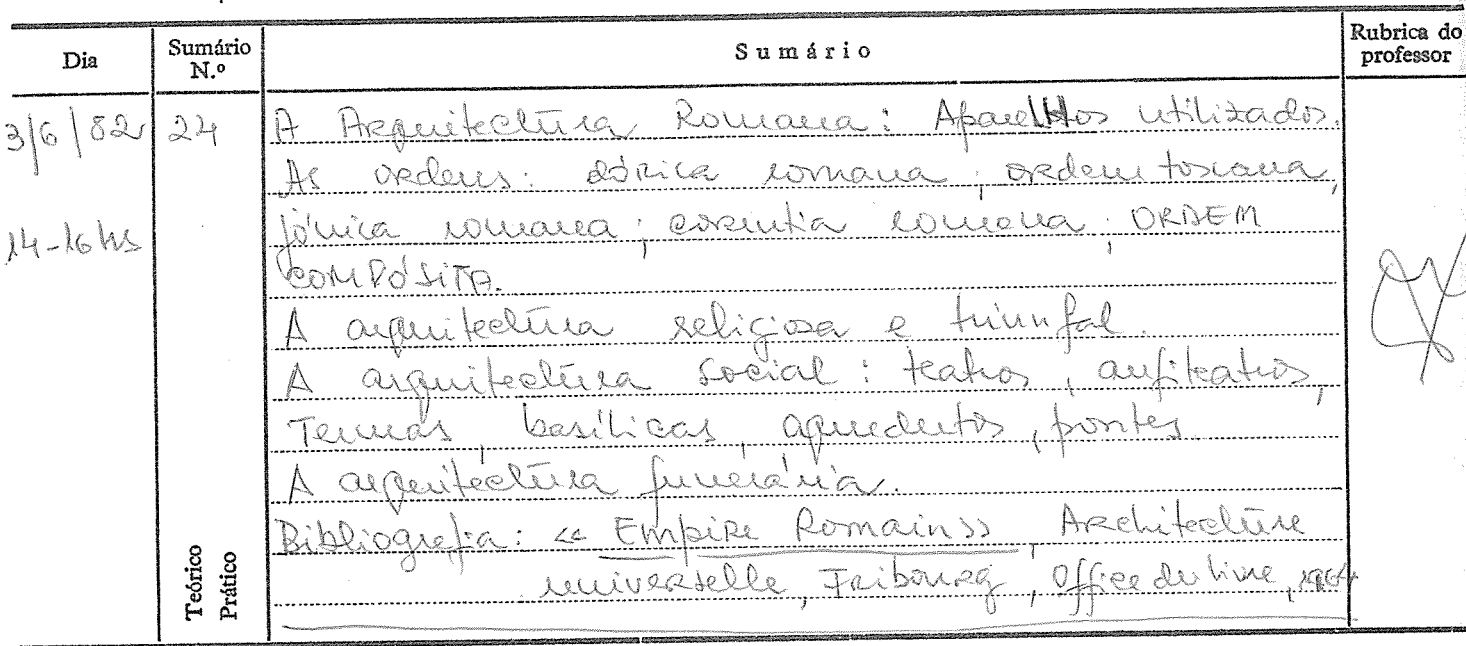 Dia Sumário N.º Sumário Rubrica do professor
3/6/82 24 A Arquitectura Romana: Aparelhos utilizados.
As ordens: dórica romana; ordem toscana,
14-16 hs jónica romana; coríntia romana; ORDEM
COMPÓSITA.
A arquitectura religiosa e triunfal.
A arquitectura social: teatros, anfiteatros,
Termas, basílicas, aquedutos, pontes.
A arquitectura funerária.
Bibliografia: «Empire Romain», Architecture
universelle, Fribourg, Office du livre, 1964
Teórico
Prático